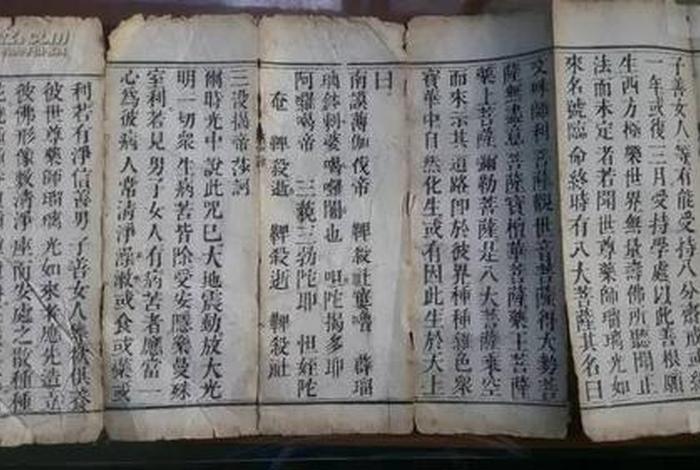 子善女人等有能受持八分齋
一年或復三月受持學處以此善根願
生西方極樂世界無量壽佛所聽聞正
法而未定者若聞世尊藥師瑠璃光如
來名號臨命終時有八大菩薩其名曰
文殊師利菩薩觀世音菩薩得大勢菩
薩無盡意菩薩寶檀華菩薩藥王菩薩
藥上菩薩彌勒菩薩是八大菩薩乘空
而來示其道路即於彼界種種雜色衆
寶華中自然化生或有因此生於天上
曰
南謨薄伽伐帝 鞞殺社窶嚕 薜瑠
璃鉢剌婆喝囉闍也 呾陀揭多耶
阿囉喝帝 三藐三勃陀耶 怛姪陀
奄 鞞殺逝 鞞殺逝 鞞殺社
三没揭帝莎訶
爾時光中說此咒已大地震動放大光
明一切衆生病苦皆除受安隱樂曼殊
室利若見男子女人有病苦者應當一
心爲彼病人常清淨澡漱或食或藥或
利若有淨信善男子善女人欲供養
彼世尊藥師瑠璃光如來者應先造立
彼佛形像敷清淨座而安處之散種種